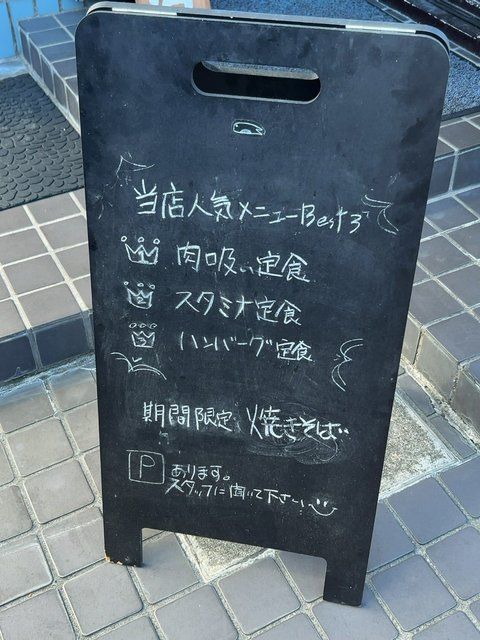 当店人気メニューBest3
肉吸い定食
スタミナ定食
ハンバーグ定食
期間限定 焼きそば
P あります。
スタッフに聞いて下さい